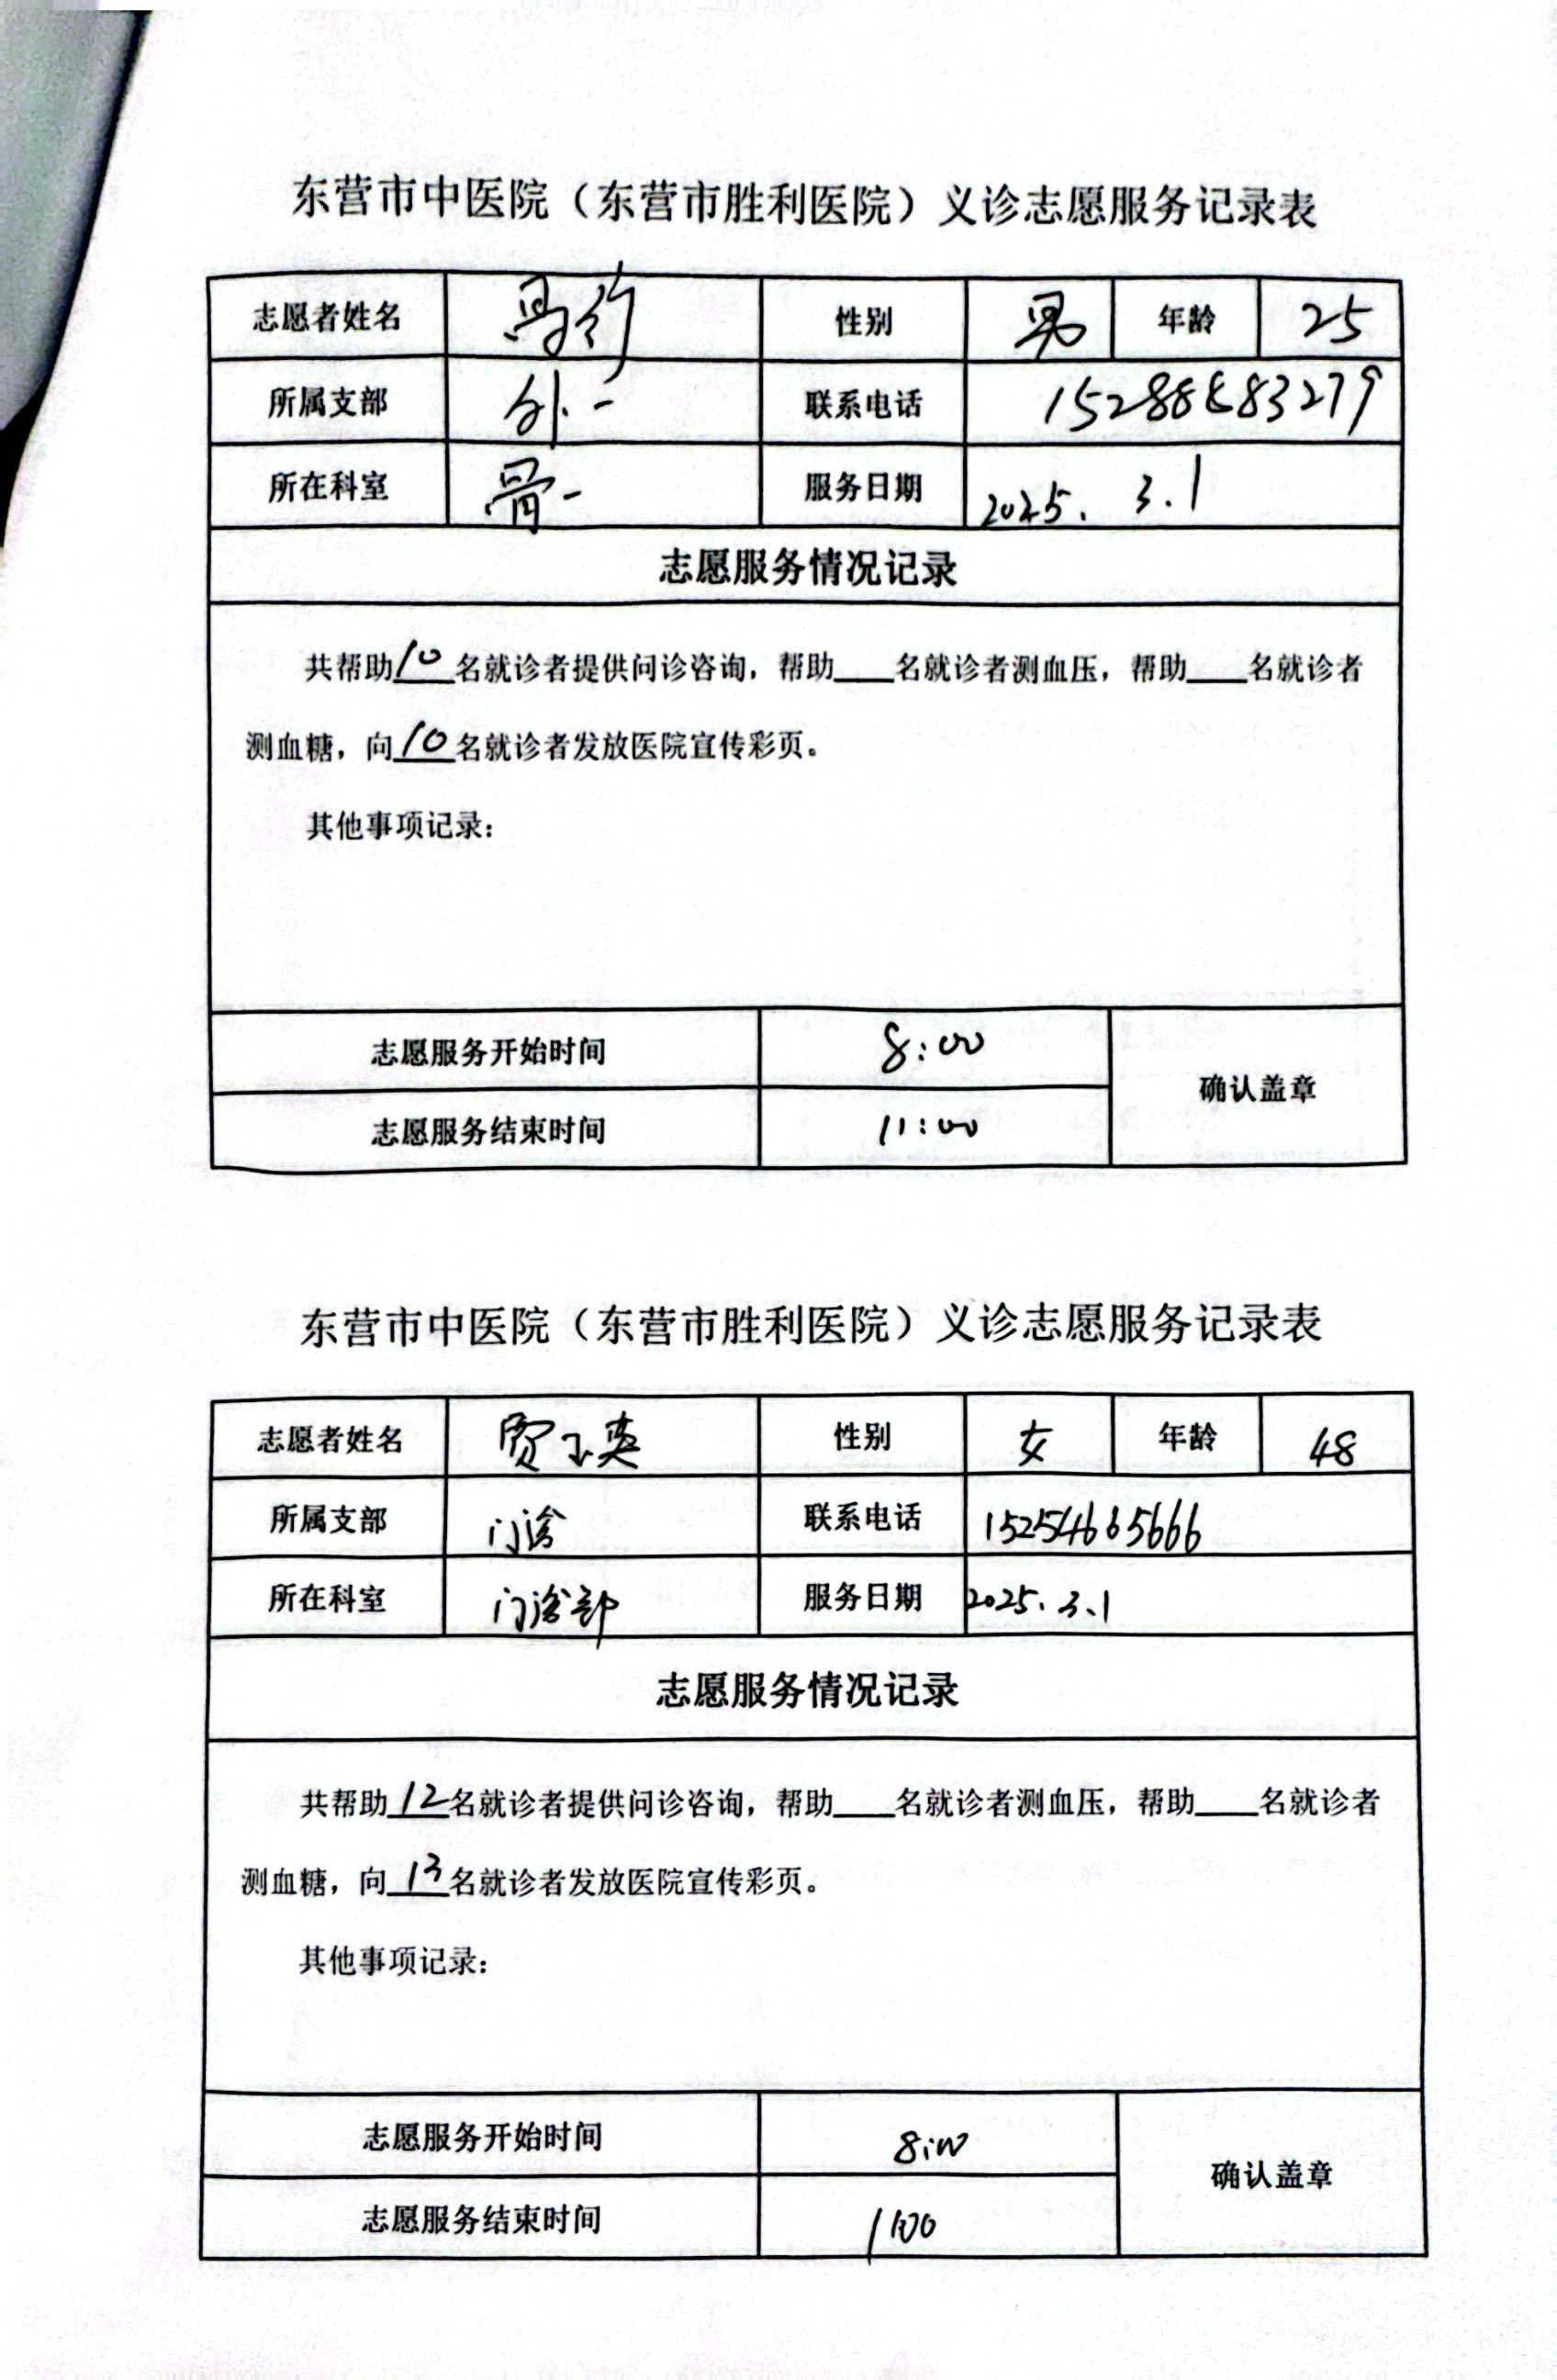 东营市中医院（东营市胜利医院）义诊志愿服务记录表
志愿者姓名 性别 男 年龄 25
所属支部 外一 联系电话 15288883279
所在科室 骨一 服务日期 2025. 3.1
志愿服务情况记录
共帮助10名就诊者提供问诊咨询，帮助___名就诊者测血压，帮助___名就诊者
测血糖，向10名就诊者发放医院宣传彩页。
其他事项记录：
志愿服务开始时间 8:00
确认盖章
志愿服务结束时间 11:00
东营市中医院（东营市胜利医院）义诊志愿服务记录表
志愿者姓名 贾玉英 性别 女 年龄 48
所属支部 门诊 联系电话 15254665666
所在科室 门诊部 服务日期 2025.3.1
志愿服务情况记录
共帮助12名就诊者提供问诊咨询，帮助___名就诊者测血压，帮助___名就诊者
测血糖，向13名就诊者发放医院宣传彩页。
其他事项记录：
志愿服务开始时间 8:00
确认盖章
志愿服务结束时间 1100